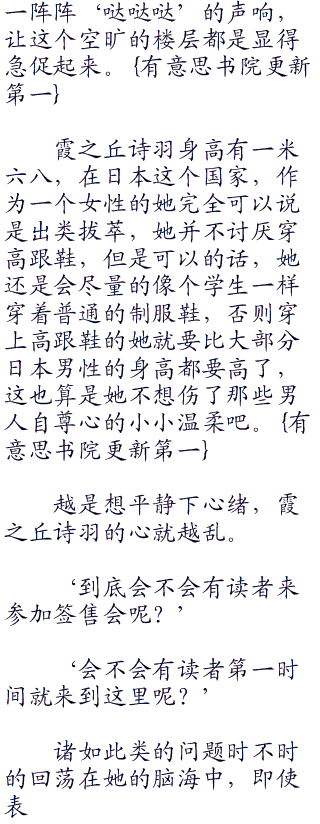 一阵阵‘哒哒哒’的声响，
让这个空旷的楼层都是显得
急促起来。{有意思书院更新
第一}
霞之丘诗羽身高有一米
六八，在日本这个国家，作
为一个女性的她完全可以说
是出类拔萃，她并不讨厌穿
高跟鞋，但是可以的话，她
还是会尽量的像个学生一样
穿着普通的制服鞋，否则穿
上高跟鞋的她就要比大部分
日本男性的身高都要高了，
这也算是她不想伤了那些男
人自尊心的小小温柔吧。{有
意思书院更新第一}
越是想平静下心绪，霞
之丘诗羽的心就越乱。
‘到底会不会有读者来
参加签售会呢？’
‘会不会有读者第一时
间就来到这里呢？’
诸如此类的问题时不时
的回荡在她的脑海中，即使
表